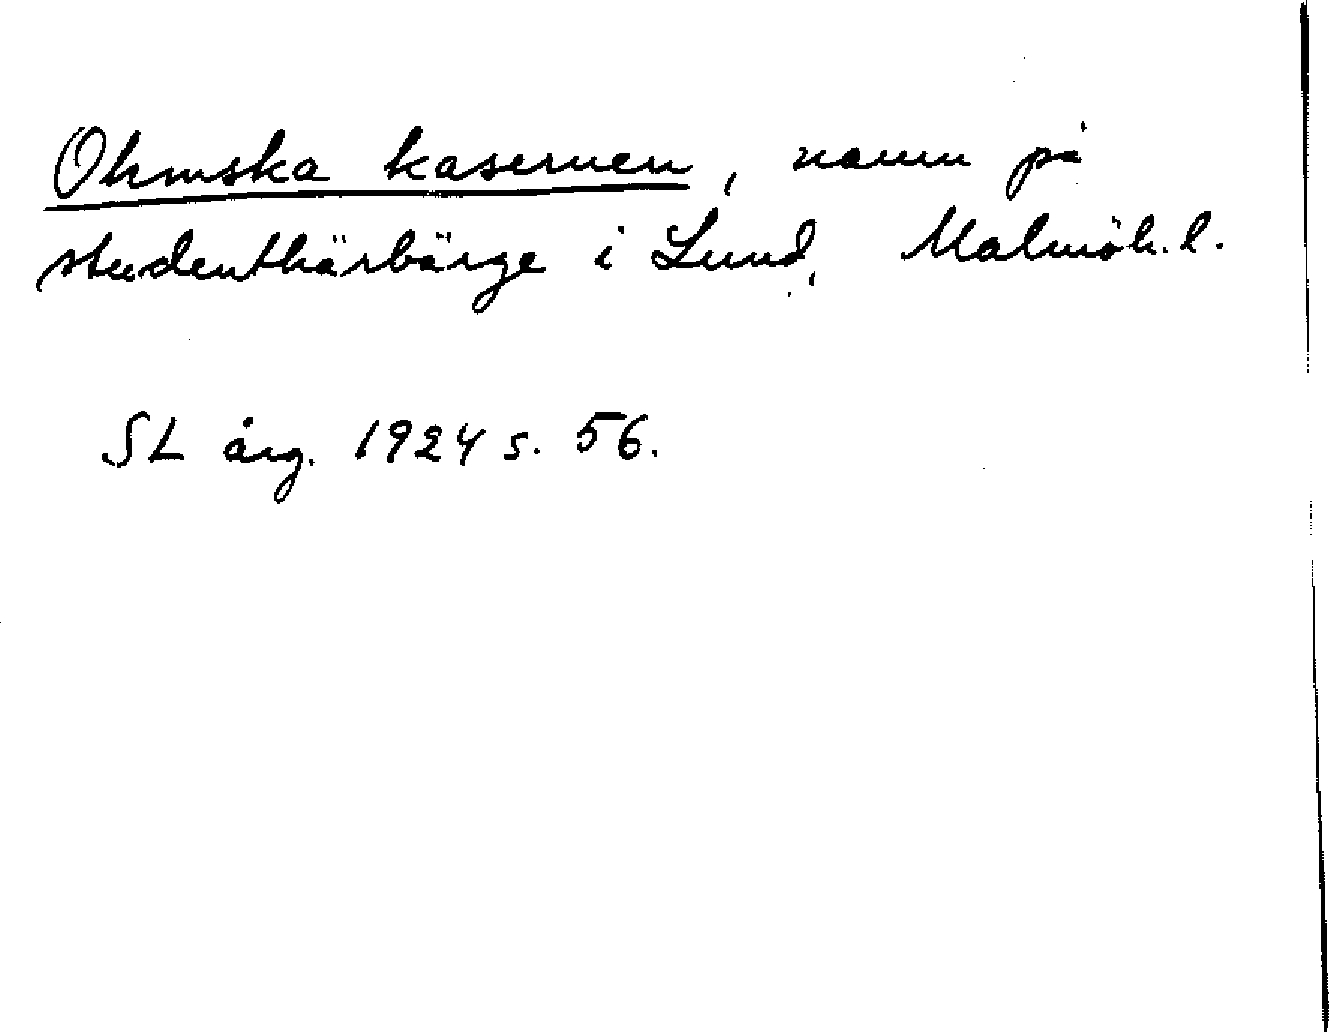 Ohmska kasernen, namn på
studenthärbärge i Lund, Malmöh. l.
SL årg. 1924 s. 56.